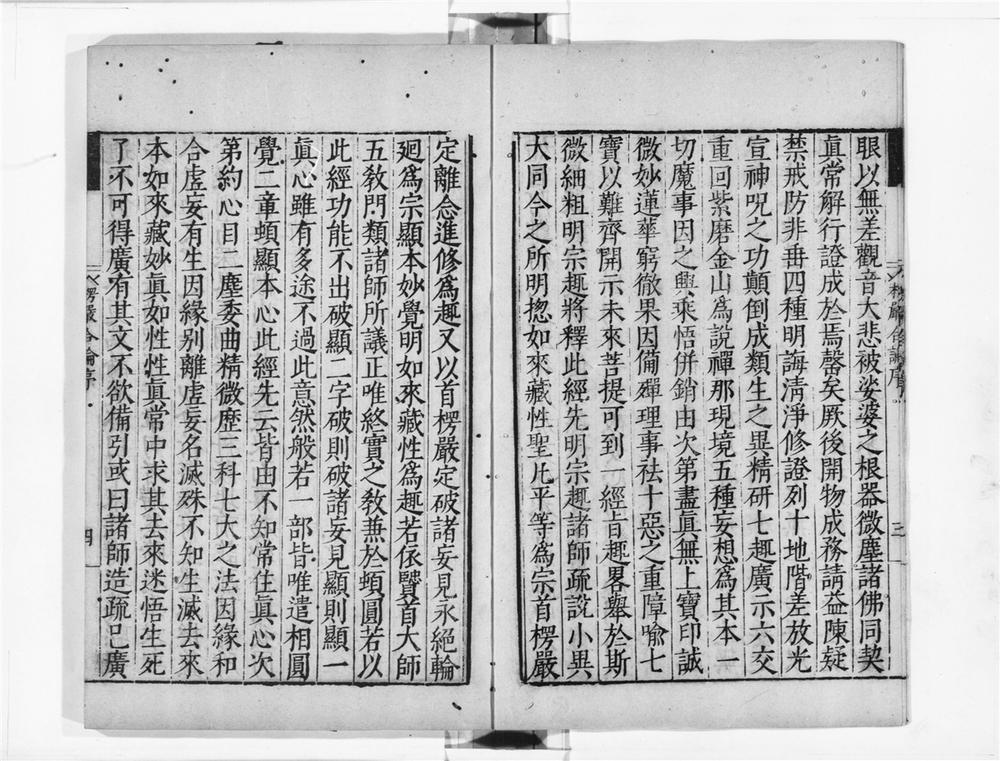 眼以無差觀音大悲被娑婆之根器微塵諸佛同契
眞常解行證成於焉罄矣厥後開物成務請益陳疑
禁戒防非毌四種明誨清淨修證列十地階差放光
宣神呪之功顛倒成類生之異精研七趣廣示六交
重回紫磨金山爲說禪那現境五種妄想爲其本一
切魔事因之興乘悟併銷由次第盡眞無上寶印誠
微妙蓮華窮徹果因備殫理事祛十惡之重障喻七
寶以難齊開示未來菩提可到一經旨趣畧舉於斯
微細粗明宗趣將釋此經先明宗趣諸師疏說小異
大同今之所明揔如來藏性聖凡平等爲宗首楞嚴
定離念進修爲趣又以首楞嚴定破諸妄見永絕輪
廻爲宗顯本妙覺明如來藏性爲趣若依賢首大師
五敎門類諸師所議正唯終實之敎兼於頓圓若以
此經功能不出破顯二字破則破諸妄見顯則顯一
眞心雖有多途不過此意然般若一部皆唯遣相圓
覺二章頓顯本心此經先云皆由不知常住眞心次
第約心目二塵委曲精微歷三科七大之法因緣和
合虛妄有生因緣別離虛妄名滅殊不知生滅去來
本如來藏妙眞如性性眞常中求其去來迷悟生死
了不可得廣有其文不欲備引或曰諸師造疏已廣
楞嚴合論序
三
楞嚴合論序
四